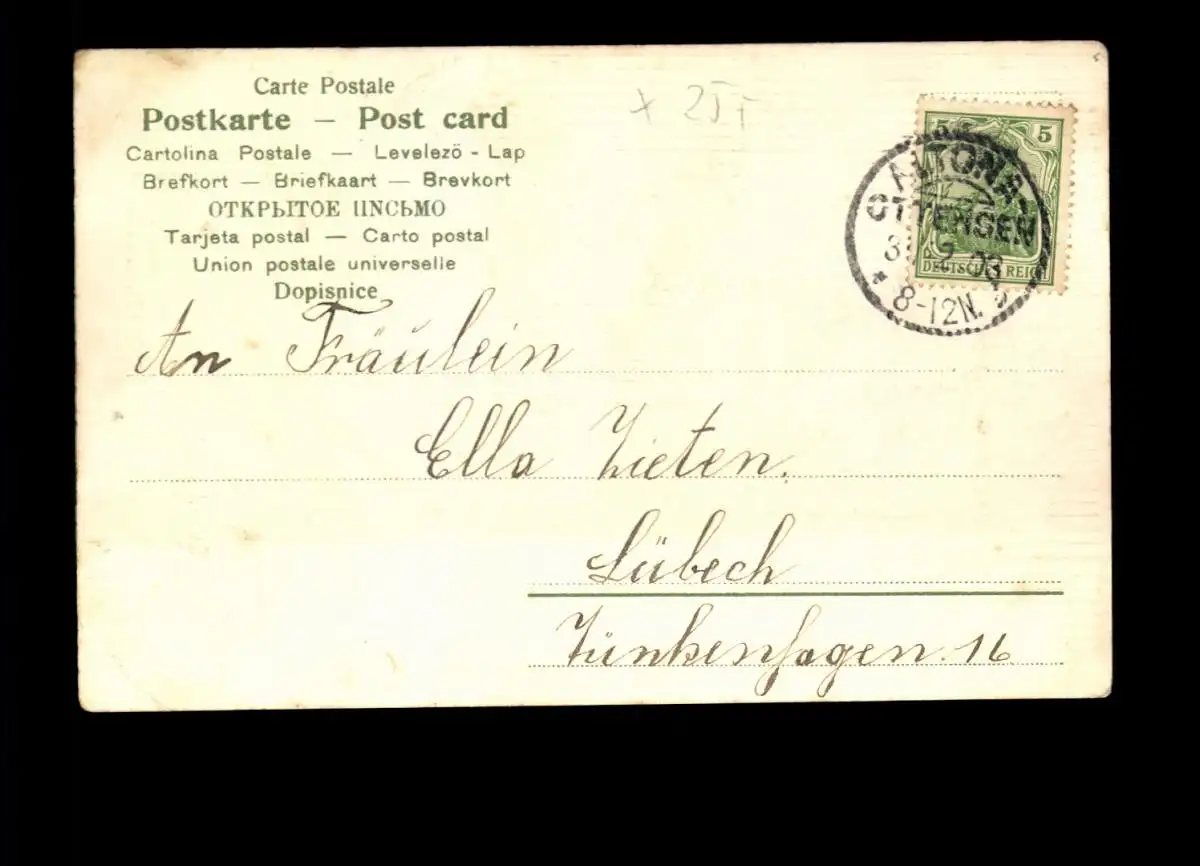 Carte Postale
Postkarte — Post card
Cartolina Postale — Levelezö - Lap
Brefkort — Briefkaart — Brevkort
ОТКРЫТОЕ ПИСЬМО
Tarjeta postal — Carto postal
Union postale universelle
Dopisnice
5 5
DEUTSCHES REICH
ALTONA-
OTTENSEN
8-12N.
An Fräulein
Ella Zieten.
Lübeck
Fünkenhagen. 16